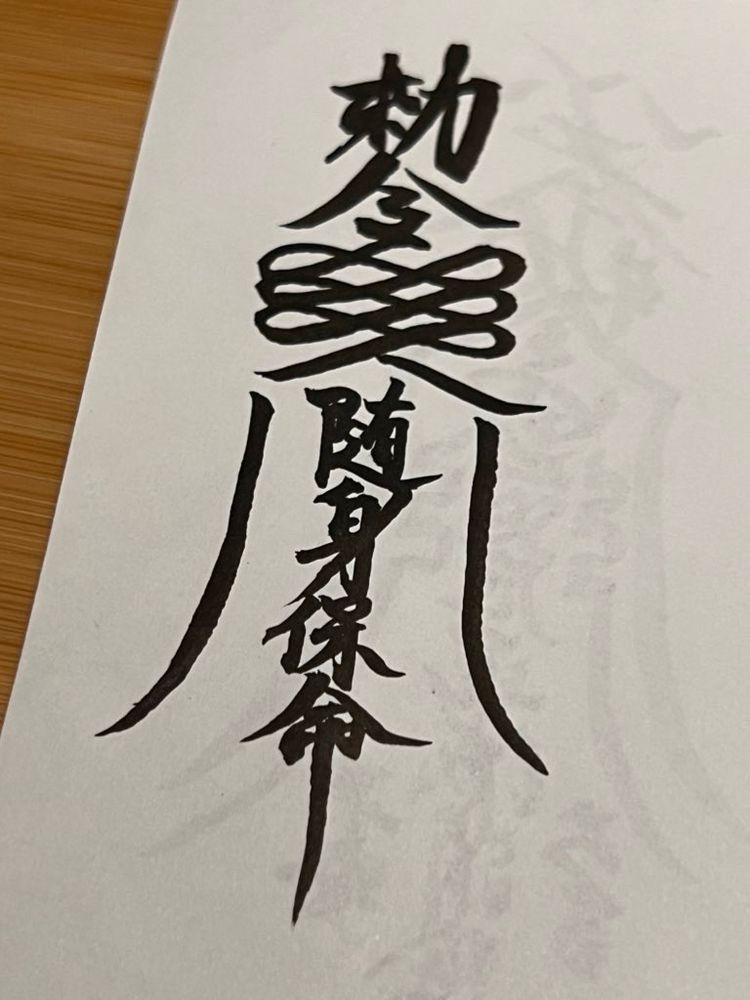 勅令
随身保命